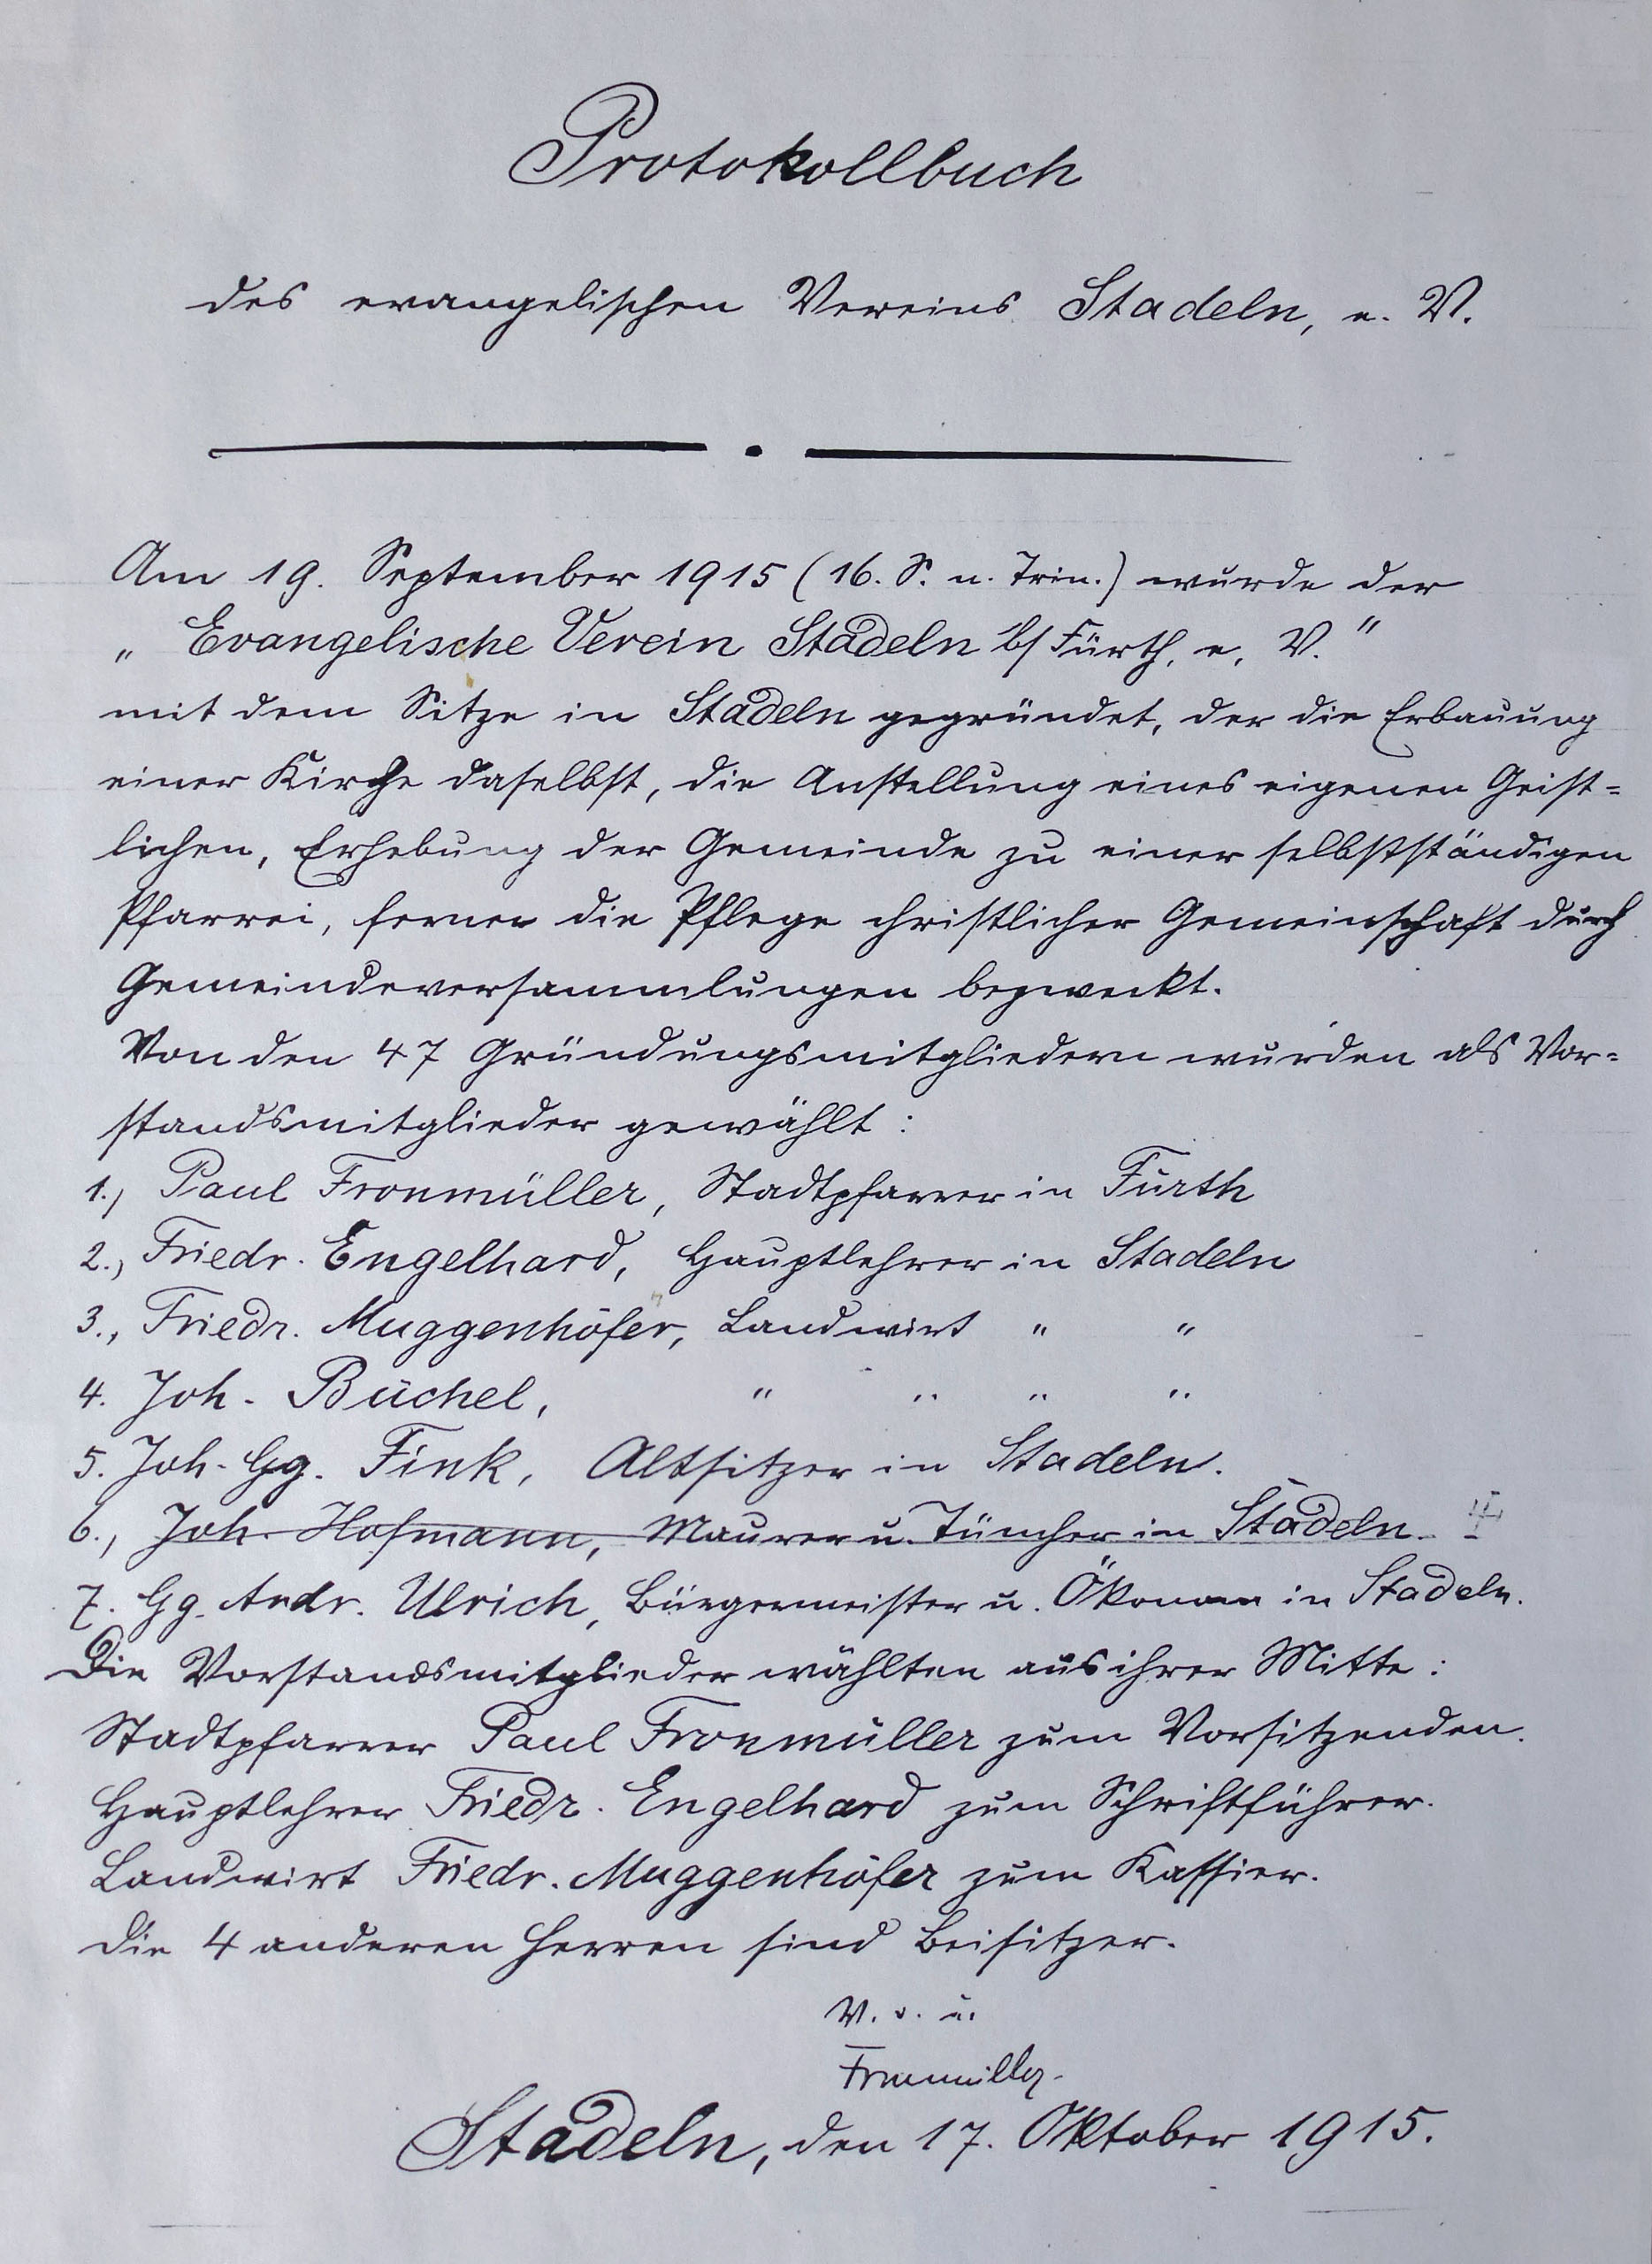 Protokollbuch
des evangelischen Vereins Stadeln, e. V.
Am 19. September 1915 (16. S. n. Trin.) wurde der
„ Evangelische Verein Stadeln b/ Fürth, e. V."
mit dem Sitze in Stadeln gegründet, der die Erbauung
einer Kirche daselbst, die Anstellung eines eigenen Geist=
lichen, Erhebung der Gemeinde zu einer selbstständigen
Pfarrei, ferner die Pflege christlicher Gemeinschaft durch
Gemeindeversammlungen bezweckt.
Von den 47 Gründungsmitgliedern wurden als Vor=
standsmitglieder gewählt:
1., Paul Fronmüller, Stadtpfarrer in Fürth
2., Friedr. Engelhard, Hauptlehrer in Stadeln
3., Friedr. Muggenhöfer, Landwirt " "
4. Joh. Büchel, " " " "
5. Joh. Gg. Fink, Altsitzer in Stadeln.
6., Joh. Hofmann, Maurer u. Tüncher in Stadeln. ‡
7. Gg. Andr. Ulrich, Bürgermeister u. Ökonom in Stadeln.
Die Vorstandsmitglieder wählten aus ihrer Mitte:
Stadtpfarrer Paul Fronmüller zum Vorsitzenden.
Hauptlehrer Friedr. Engelhard zum Schriftführer.
Landwirt Friedr. Muggenhöfer zum Kassier.
Die 4 anderen Herren sind Beisitzer.
V. v. u.
Fronmüller.
Stadeln, den 17. Oktober 1915.